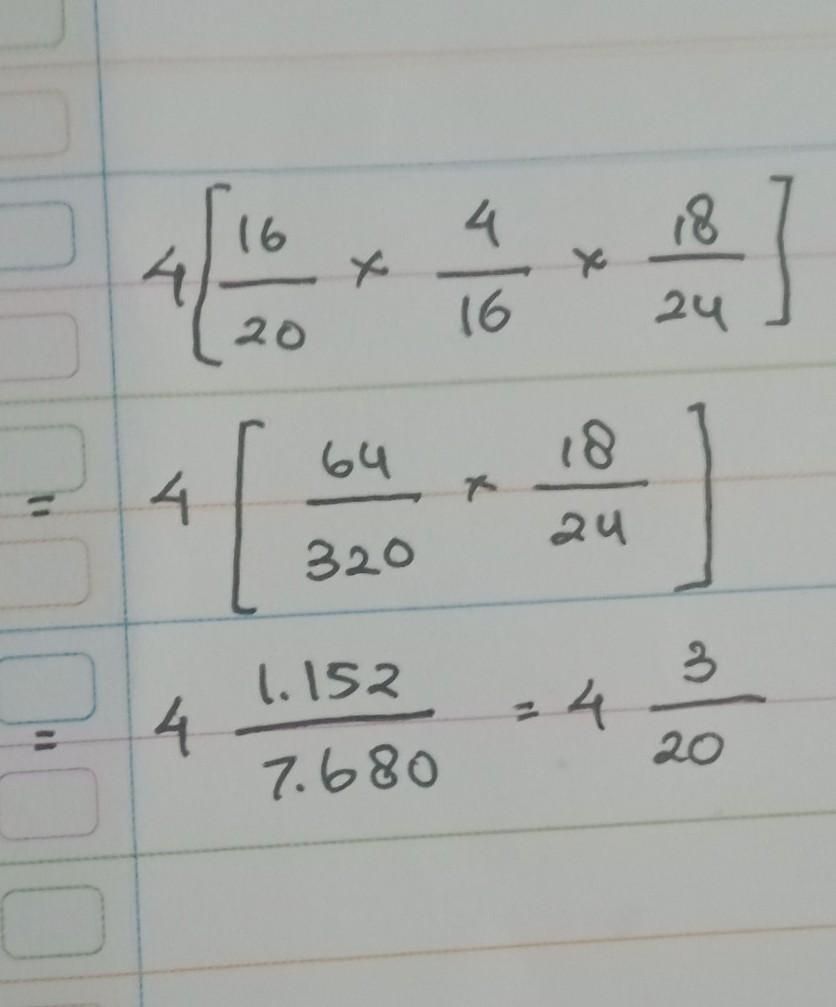 4[16/20 × 4/16 × 18/24]
= 4[64/320 × 18/24]
= 4 1.152/7.680 = 4 3/20